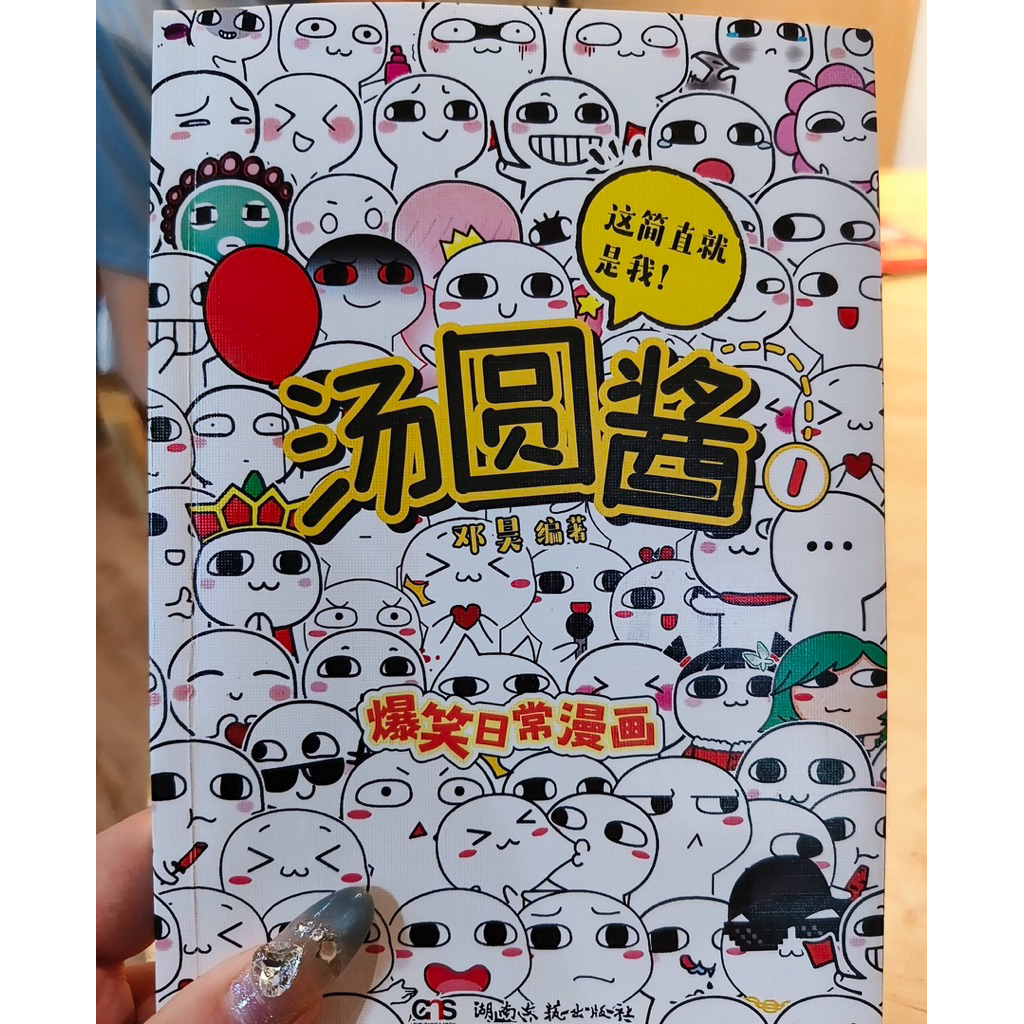 这简直就
是我！
汤圆酱
1
邓昊 编著
爆笑日常漫画
CNS 湖南文艺出版社